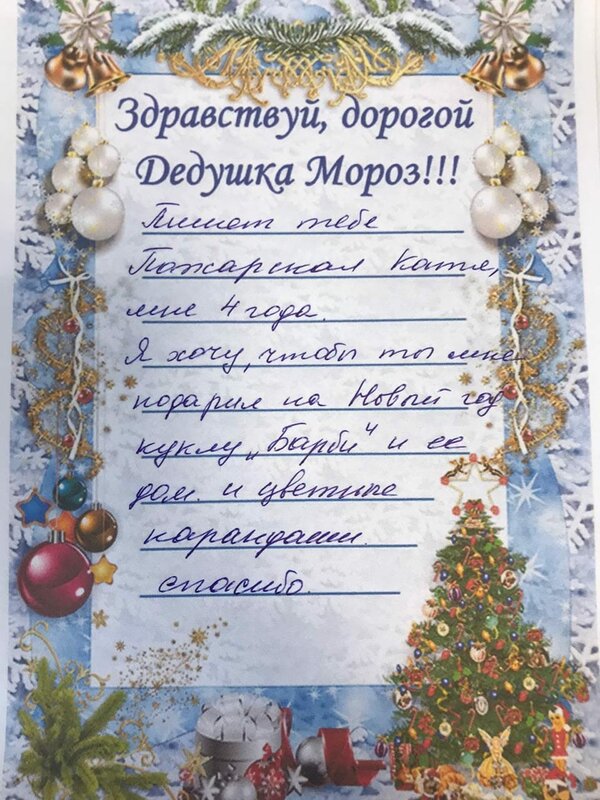 Здравствуй, дорогой
Дедушка Мороз!!!
Пишет тебе
Пожарская Катя,
мне 4 года.
Я хочу, чтобы ты мне
подарил на Новый год
куклу „Барби" и ее
дом. и цветные
карандаши.
спасибо.